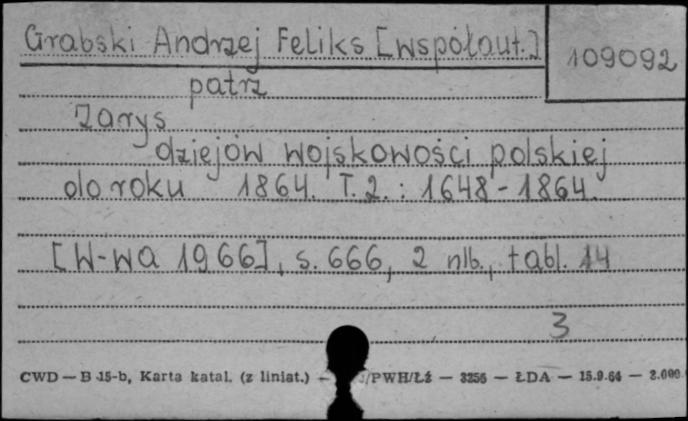 Grabski Andrzej Feliks [współaut.]
109092
patrz
Zarys
dziejów wojskowości polskiej
do roku 1864. T. 2.: 1648-1864.
[W-wa 1966], s. 666, 2 nlb., tabl. 14
3
CWD — B 15-b, Karta katal. (z liniat.) — /PWH/Łź — 3256 — ŁDA — 15.9.64 — 2.000